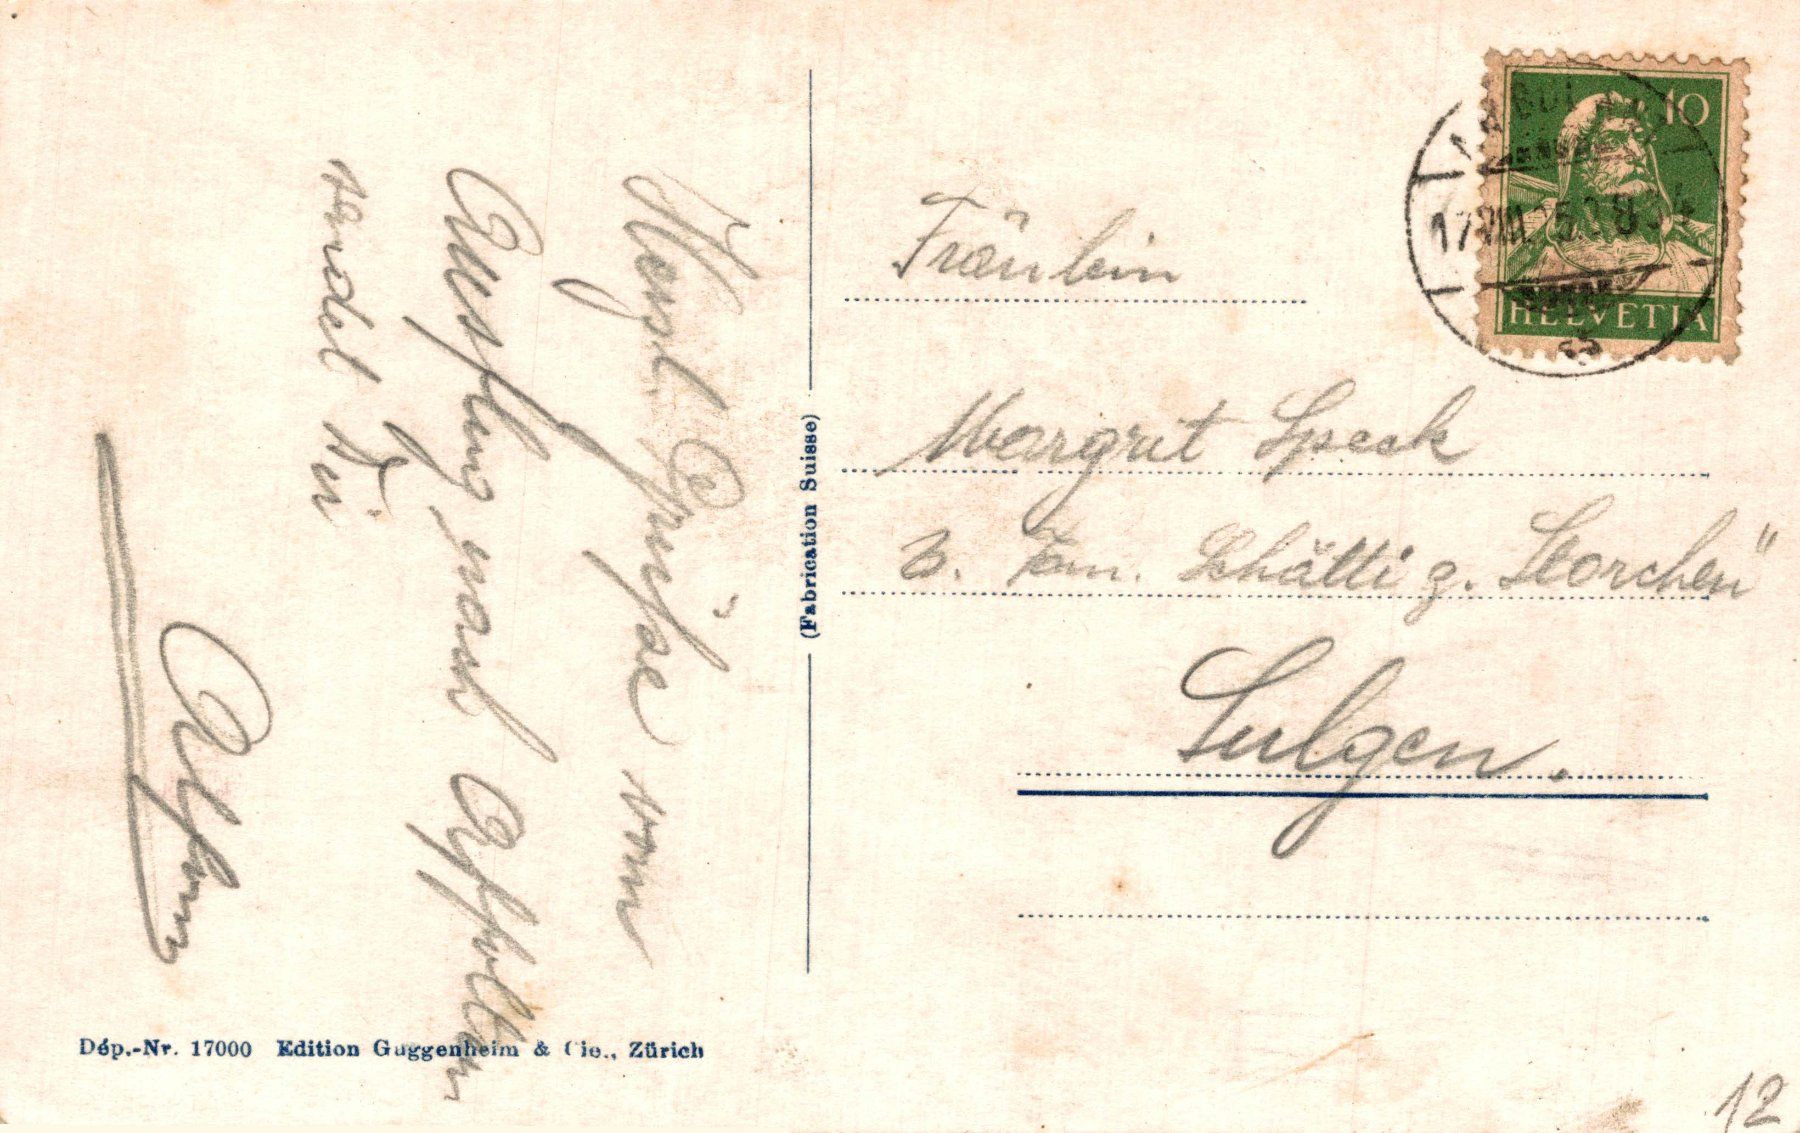 Herzl. Grüsse vom
Ausflug nach Affoltern
sendet Dir
Alfons
Dép.-Nr. 17000 Edition Guggenheim & Cie., Zürich
(Fabrication Suisse)
10
HELVETIA
Fräulein
Margrit Speck
b. Fam. Schätti z. Storchen"
Sulgen.
12